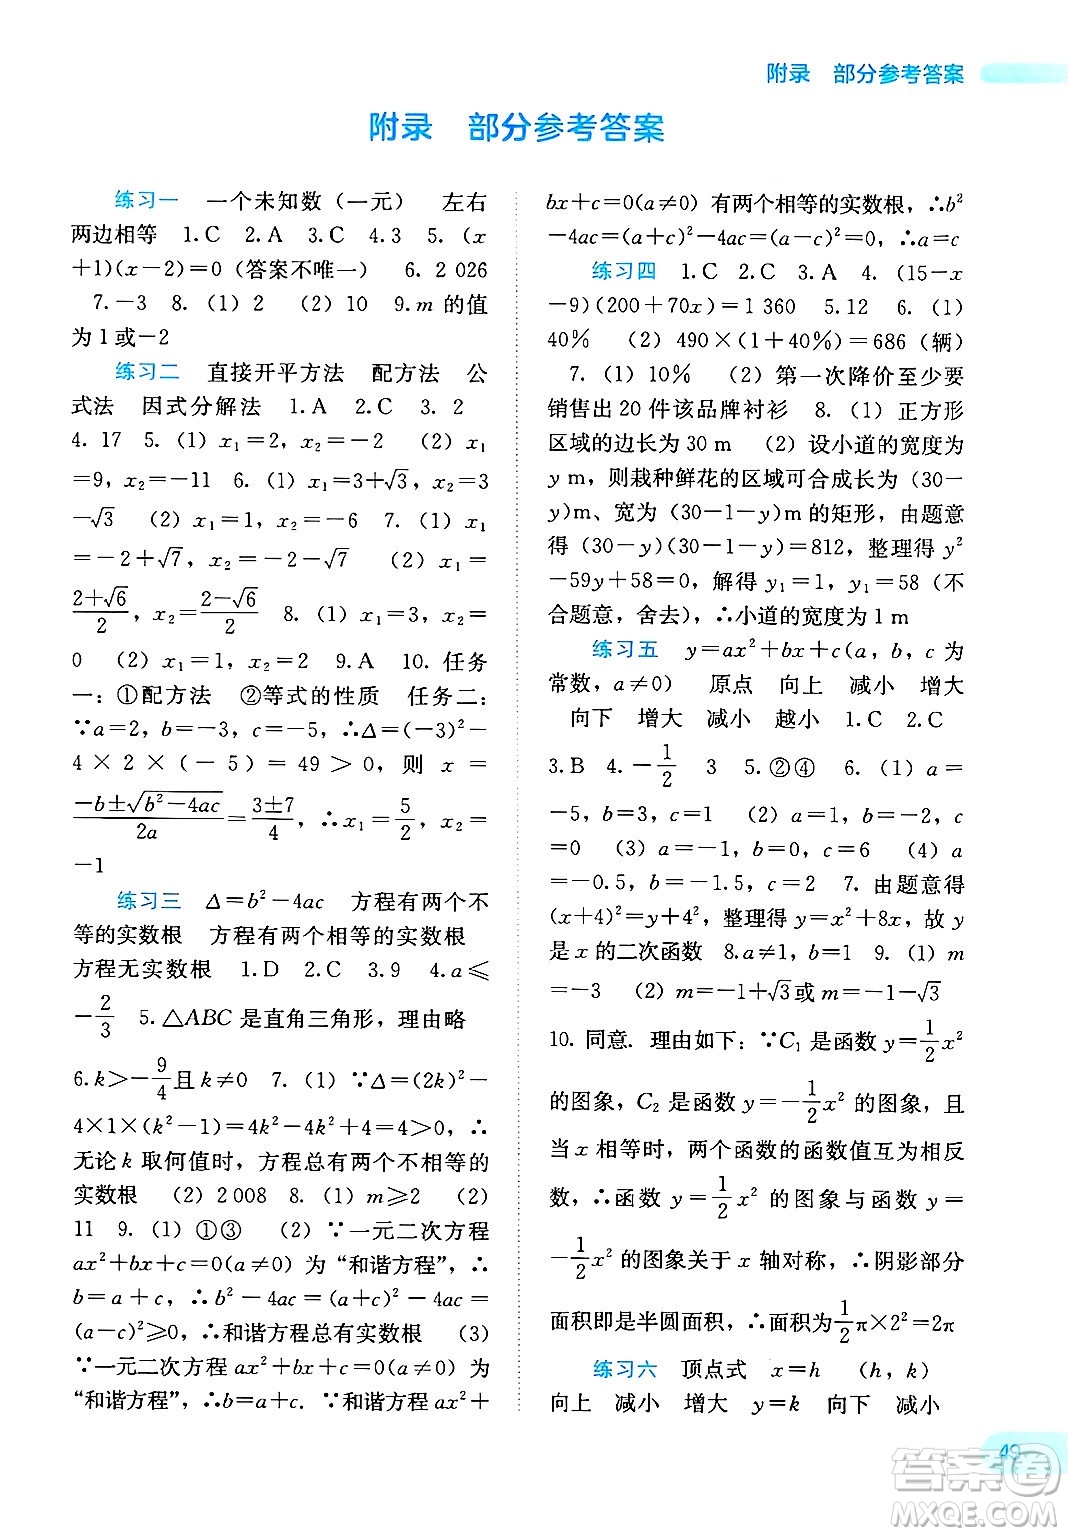 附录　部分参考答案
附录　部分参考答案
练习一　一个未知数(一元)　左右
两边相等　1.C　2.A　3.C　4.3　5.(x
+1)(x-2)=0(答案不唯一)　6.2 026
7.-3　8.(1)2　(2)10　9.m 的值
为 1 或-2
练习二　直接开平方法　配方法　公
式法　因式分解法　1.A　2.C　3.2
4.17　5.(1)x₁=2,x₂=-2　(2)x₁
=9,x₂=-11　6.(1)x₁=3+√3,x₂=3
-√3　(2)x₁=1,x₂=-6　7.(1)x₁
=-2+√7,x₂=-2-√7　(2)x₁=
(2+√6)/2,x₂=(2-√6)/2　8.(1)x₁=x₂=
0　(2)x₁=1,x₂=3　9.A　10.任务
一:①配方法　②等式的性质　任务二:
∵a=2,b=-3,c=-5,∴Δ=(-3)²-
4×2×(-5)=49>0,则 x=
(-b±√(b²-4ac))/2a=(3±7)/4,∴x₁=5/2,x₂=
-1
练习三　Δ=b²-4ac　方程有两个不
等的实数根　方程有两个相等的实数根
方程无实数根　1.D　2.C　3.9　4.a≤
-2/3　5.△ABC 是直角三角形,理由略
6.k>-9/4且 k≠0　7.(1)∵Δ=(2k)²-
4×1×(k²-1)=4k²-4k²+4=4>0,∴
无论 k 取何值时,方程总有两个不相等的
实数根　(2)2 008　8.(1)m≥2　(2)
11　9.(1)①③　(2)∵一元二次方程
ax²+bx+c=0(a≠0)为“和谐方程”,∴
b=a+c,∴b²-4ac=(a+c)²-4ac=
(a-c)²≥0,∴和谐方程总有实数根　(3)
∵一元二次方程 ax²+bx+c=0(a≠0)为
“和谐方程”,∴b=a+c.∵和谐方程 ax²+
bx+c=0(a≠0)有两个相等的实数根,∴b²
-4ac=(a+c)²-4ac=(a-c)²=0,∴a=c
练习四　1.C　2.C　3.A　4.(15-x
-9)(200+70x)=1 360　5.12　6.(1)
40%　(2)490×(1+40%)=686(辆)
7.(1)10%　(2)第一次降价至少要
销售出 20 件该品牌衬衫　8.(1)正方形
区域的边长为 30 m　(2)设小道的宽度为
y m,则栽种鲜花的区域可合成长为(30-
y)m、宽为(30-1-y)m 的矩形,由题意
得(30-y)(30-1-y)=812,整理得 y²
-59y+58=0,解得 y₁=1,y₁=58(不
合题意,舍去),∴小道的宽度为 1 m
练习五　y=ax²+bx+c(a,b,c 为
常数,a≠0)　原点　向上　减小　增大
向下　增大　减小　越小　1.C　2.C
3.B　4.-1/2　3　5.②④　6.(1)a=
-5,b=6,c=1　(2)a=1,b=-2,c
=0　(3)a=-1,b=0,c=6　(4)a
=-0.5,b=-1.5,c=2　7.由题意得
(x+4)²=y+4²,整理得 y=x²+8x,故 y
是 x 的二次函数　8.a≠1,b=1　9.(1)m
=-3　(2)m=-1+√3或 m=-1-√3
10.同意.理由如下:∵C₁ 是函数 y=1/2x²
的图象,C₂ 是函数 y=-1/2x² 的图象,且
当 x 相等时,两个函数的函数值互为相反
数,∴函数 y=1/2x² 的图象与函数 y=
-1/2x² 的图象关于 x 轴对称,∴阴影部分
面积即是半圆面积,∴面积为1/2π×2²=2π
练习六　顶点式　x=h　(h,k)
向上　减小　增大　y=k　向下　减小
49
答案圈
MXQE.COM